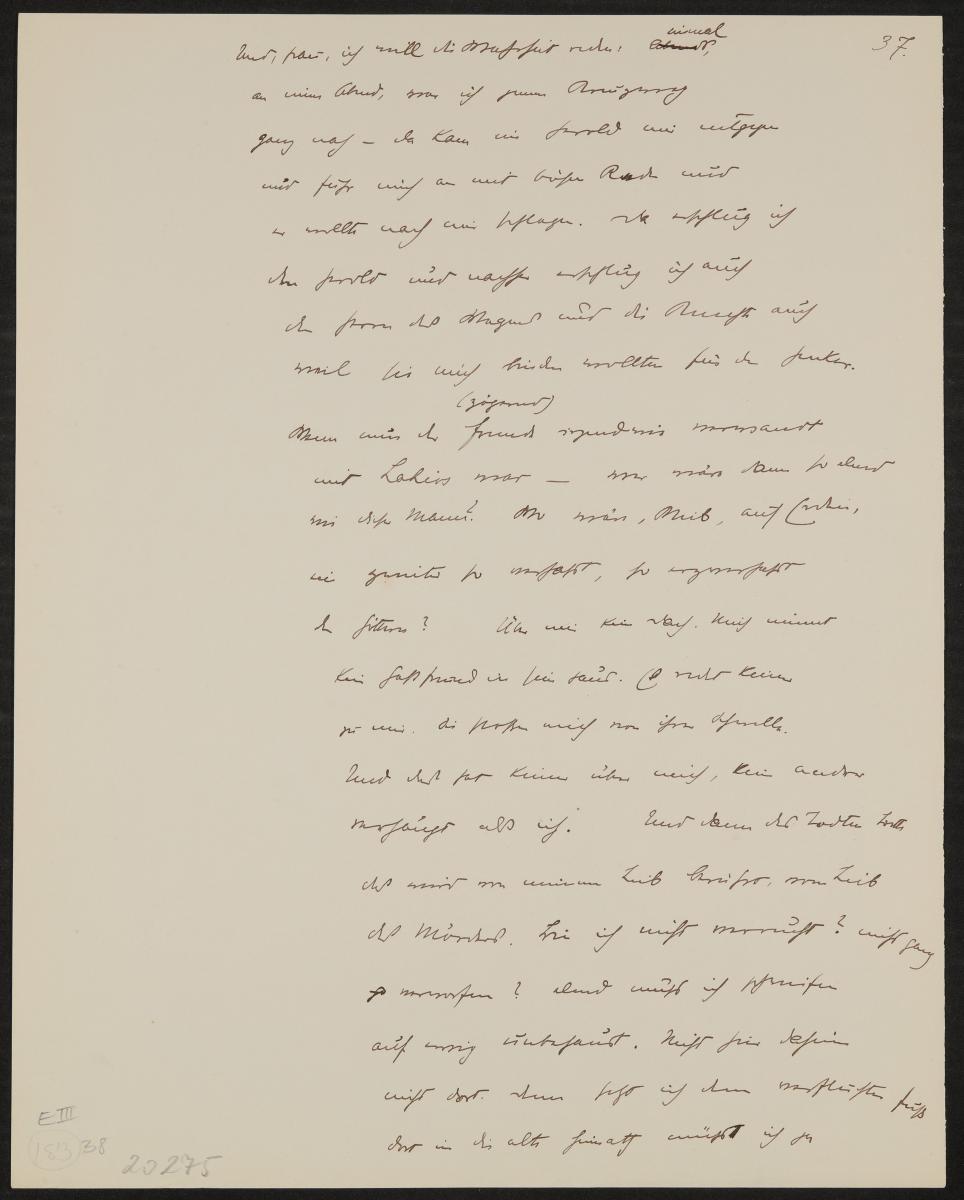 37.
einmal
Und, Frau, ich will die Wahrheit reden: Abends,
an einem Abend, war ich jenem Kreuzweg
ganz nah – da kam ein Herold mir entgegen
und fuhr mich an mit böser Rede und
er wollte nach mir schlagen. Da erschlug ich
den Herold und nachher erschlug ich auch
den Herrn des Wagens und die Knechte auch
weil sie mich binden wollten für den Henker.
(zögernd)
Wenn nun der Fremde irgendwie verwandt
mit Laïos war — wer wäre dann so elend
wie dieser Mann? Wo wäre, Weib, auf Erden,
ein zweiter so verhasst, so
den Göttern? Über mir kein Dach. Mich nimmt
kein Gastfreund in sein Haus. Es redet keiner
zu mir. Sie stoßen mich von ihrer Schwelle.
Und das hat keiner über mich, kein andrer
verhängt als ich. Und dann des Todten Bett
das wird von meinem Leib berührt, vom Leib
des Mörders. Bin ich nicht verrucht? nicht ganz
verworfen? elend muß ich schweifen
auf ewig unbehaust. Nicht hier daheim
nicht dort. denn setzt ich den verfluchten Fuß
dort in die alte Heimath müßt ich ja
E III
183 38
20275